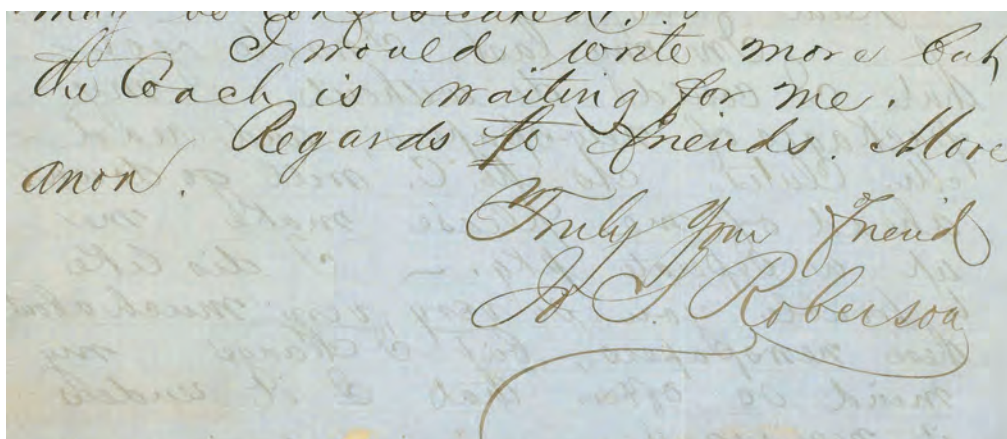 may be confiscated.
I would write more but
the Coach is waiting for me.
Regards to friends. More
anon.
Truly your friend
Jo S. Roberson